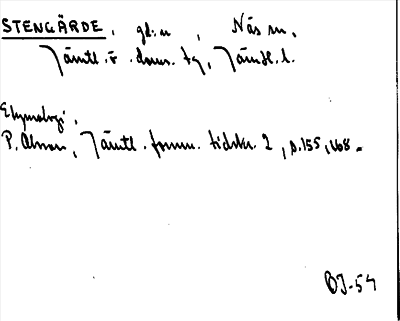 STENGÄRDE, gd. i , Näs sn,
Jämtl. ö. doms. tg, Jämtl. l.
Etymologi,
P. Olsson, Jämtl. fornm. tidskr. 2, s. 155, 168.
BJ-54